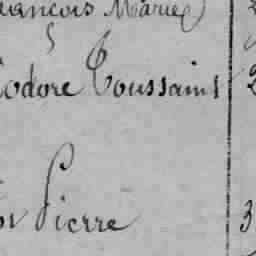 ançois Marie
odore Toussaint 2
Pierre 3